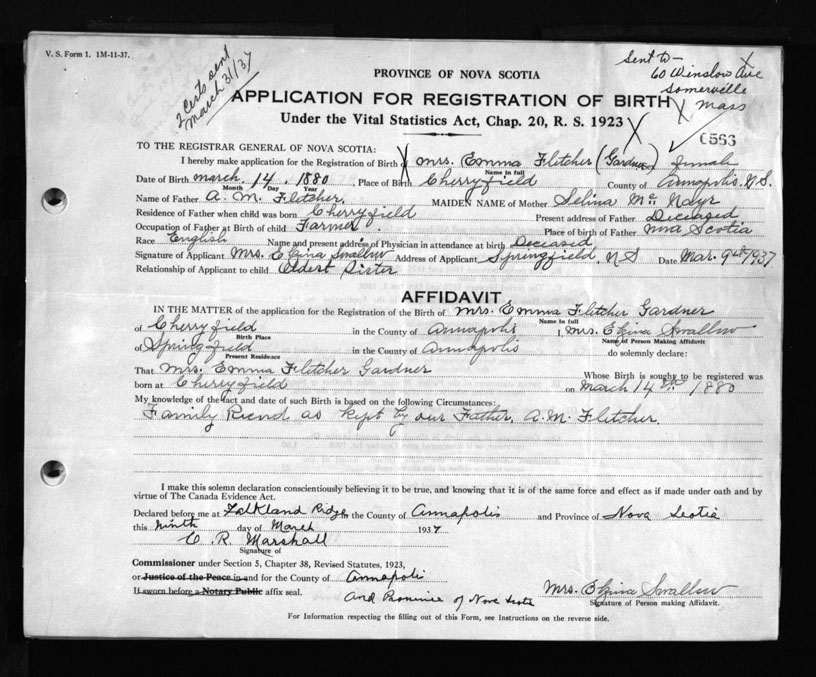 V. S. Form 1. 1M-11-37.
2 Certs sent
March 31/37
Sent to-
60 Winslow Ave
Somerville
Mass
PROVINCE OF NOVA SCOTIA
APPLICATION FOR REGISTRATION OF BIRTH
Under the Vital Statistics Act, Chap. 20, R. S. 1923
TO THE REGISTRAR GENERAL OF NOVA SCOTIA:
I hereby make application for the Registration of Birth of Mrs. Emma Fletcher (Gardner) Female
Name in full
Date of Birth March 14, 1880, Place of Birth Cherryfield County of Annapolis. N.S.
Month Day Year
Name of Father A. M. Fletcher. MAIDEN NAME of Mother Selina Mc Nayr
Residence of Father when child was born Cherryfield Present address of Father Deceased
Occupation of Father at Birth of child Farmer. Place of birth of Father Nova Scotia
Race English Name and present address of Physician in attendance at birth Deceased
Signature of Applicant Mrs. Elzina Swallow Address of Applicant Springfield, N S Date Mar. 9th 1937
Relationship of Applicant to child Eldest Sister
AFFIDAVIT
IN THE MATTER of the application for the Registration of the Birth of Mrs. Emma Fletcher Gardner
Name in full
of Cherryfield in the County of Annapolis I, Mrs. Elzina Swallow
Birth Place Name of Person Making Affidavit
of Springfield in the County of Annapolis do solemnly declare:
Present Residence
That Mrs. Emma Fletcher Gardner Whose Birth is sought to be registered was
born at Cherryfield on March 14th 1880
My knowledge of the fact and date of such Birth is based on the following Circumstances:
Family Record as kept by our Father, A. M. Fletcher.
I make this solemn declaration conscientiously believing it to be true, and knowing that it is of the same force and effect as if made under oath and by
virtue of The Canada Evidence Act.
Declared before me at Falkland Ridge the County of Annapolis and Province of Nova Scotia
this Ninth day of March 1937
C. R. Marshall
Signature of
Commissioner under Section 5, Chapter 38, Revised Statutes, 1923,
or Justice of the Peace in and for the County of Annapolis
If sworn before a Notary Public affix seal. and Province of Nova Scotia
Mrs. Elzina Swallow
Signature of Person making Affidavit.
For Information respecting the filling out of this Form, see Instructions on the reverse side.